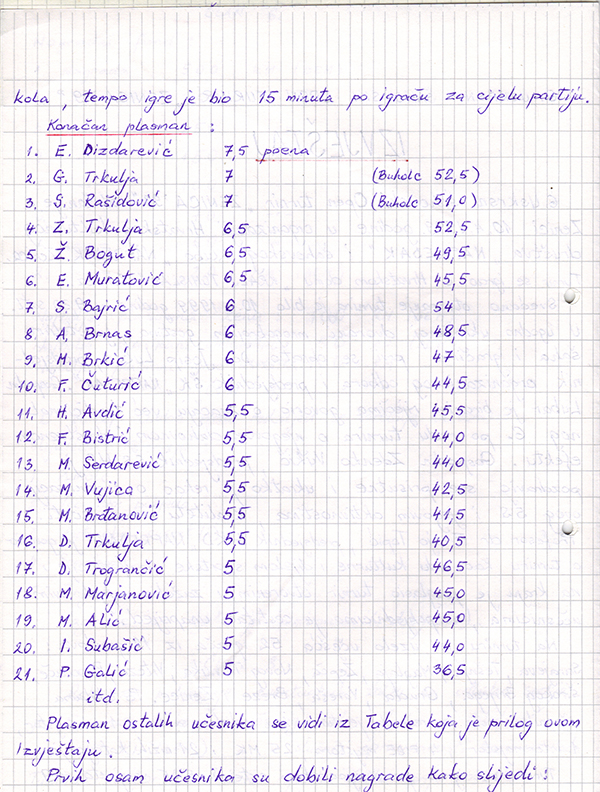 kola, tempo igre je bio 15 minuta po igraču za cijelu partiju.
Konačan plasman :
1. E. Dizdarević 7,5 poena
2. G. Trkulja 7 (Buholc 52,5)
3. S. Rašidović 7 (Buholc 51,0)
4. Z. Trkulja 6,5 52,5
5. Ž. Bogut 6,5 49,5
6. E. Muratović 6,5 45,5
7. S. Bajrić 6 54
8 A, Brnas 6 48,5
9. M. Brkić 6 47
10. F. Čuturić 6 44,5
11. H. Avdić 5,5 45,5
12. F. Bistrić 5,5 44,0
13. M. Serdarević 5,5 44,0
14. M. Vujica 5,5 42,5
15. M. Brđanović 5,5 41,5
16. D. Trkulja 5,5 40,5
17. D. Trogrančić 5 46,5
18. M. Marjanović 5 45,0
19. M. Alić 5 45,0
20. I. Subašić 5 44,0
21. P. Galić 5 36,5
itd.
Plasman ostalih učesnika se vidi iz Tabele koja je prilog ovom
Izvještaju.
Prvih osam učesnika su dobili nagrade kako slijedi :